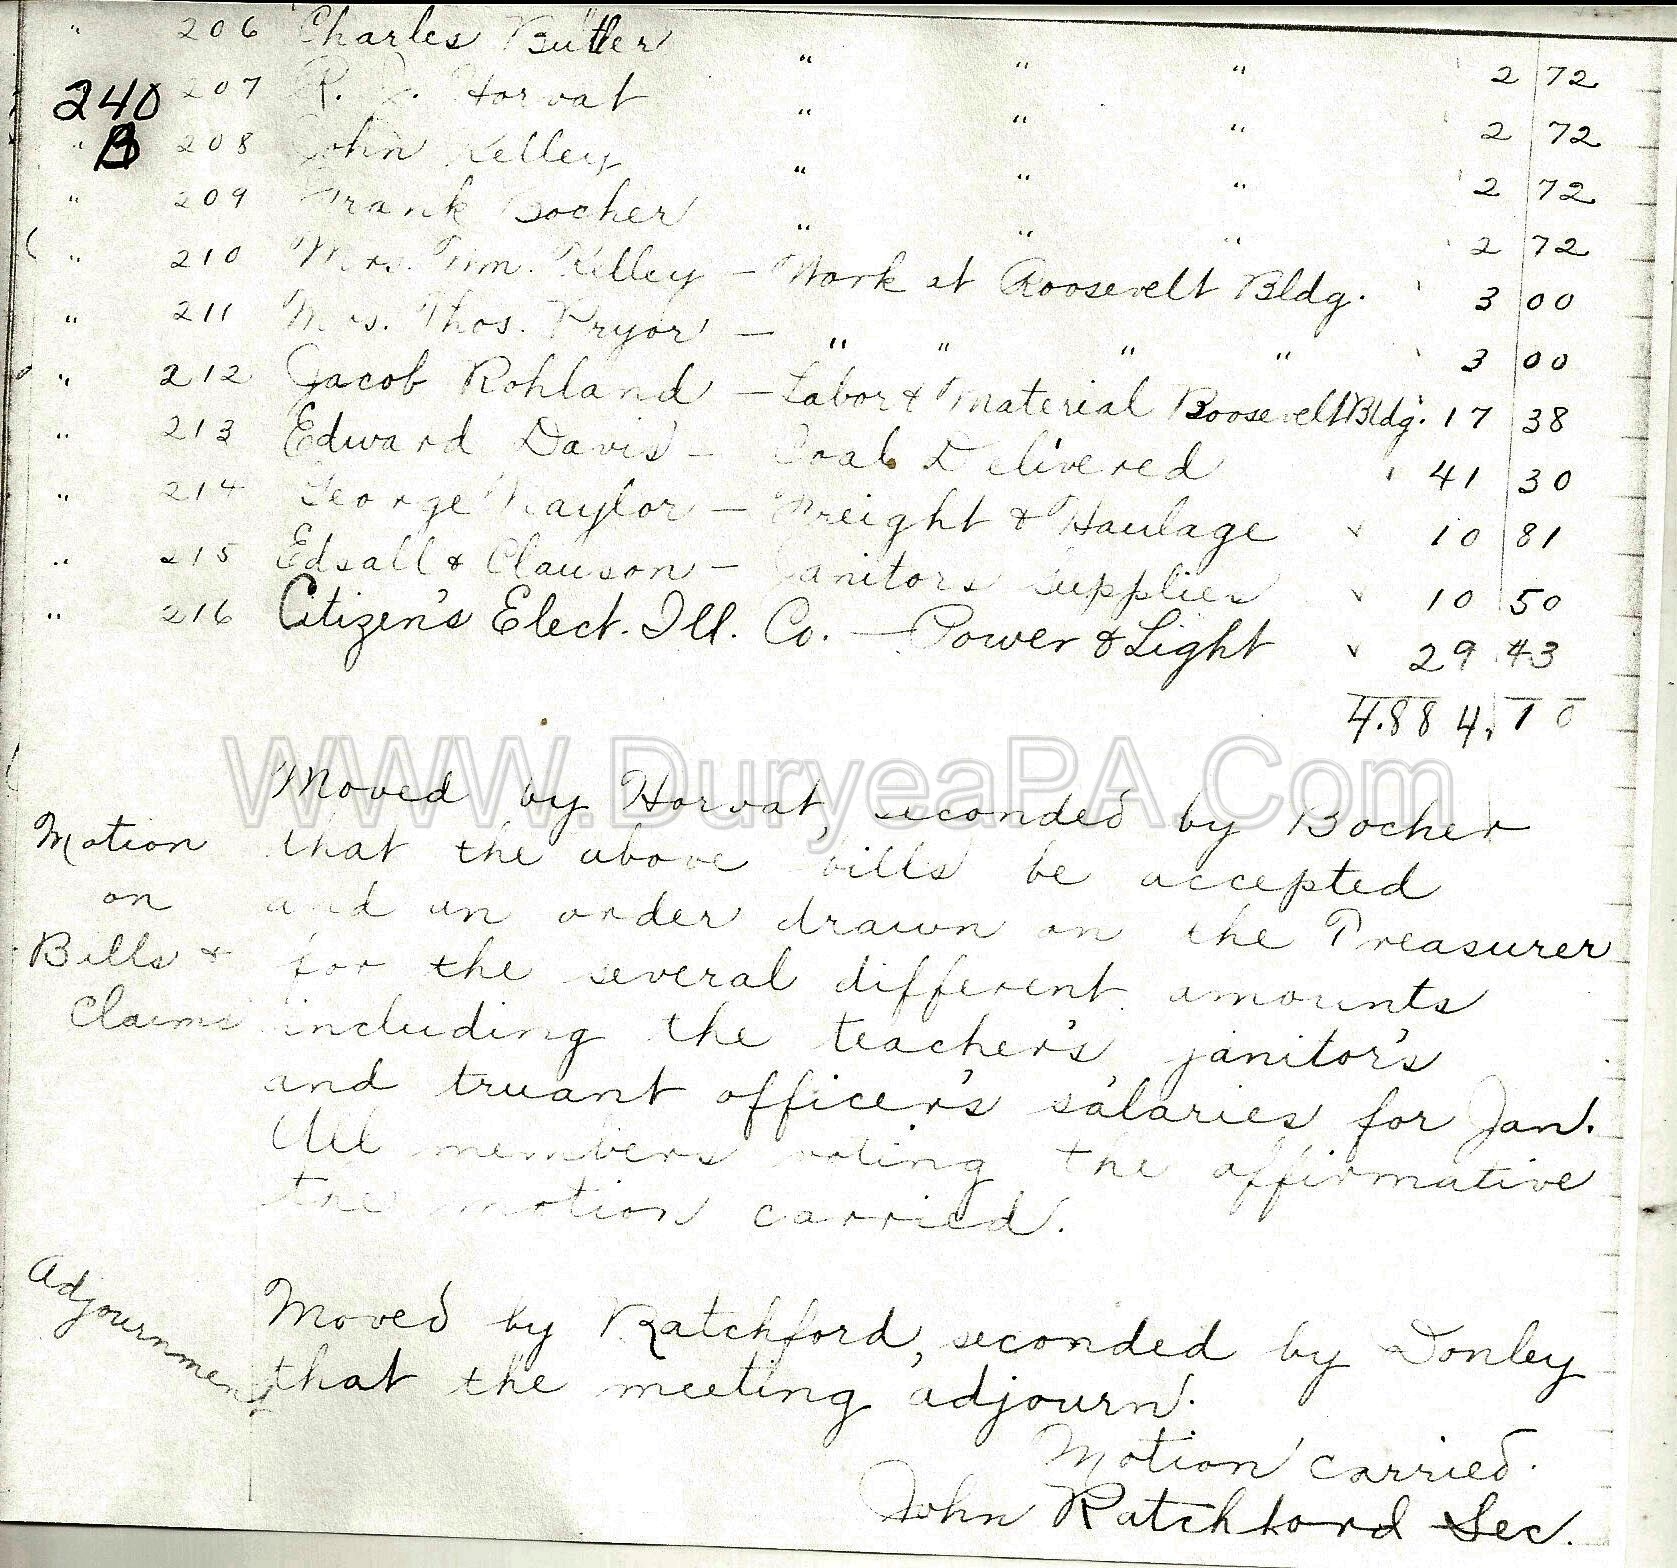 " 206 Charles Butler " " " 2 72
240 207 R. J. Horvat " " " 2 72
B " 208 John Kelley " " " 2 72
" 209 Frank Bocher " " " 2 72
" 210 Mrs. Tim. Kelley – Work at Roosevelt Bldg. 3 00
" 211 Mrs. Thos. Pryor – " " " " 3 00
" 212 Jacob Rohland – Labor & Material Roosevelt Bldg. 17 38
" 213 Edward Davis – Coal Delivered 41 30
" 214 George Naylor – Freight & Haulage 10 81
" 215 Edsall & Clauson – Janitors supplies 10 50
" 216 Citizen's Elect. Ill. Co. – Power & Light 29 43
4.884.10
WWW.DuryeaPA.Com
Moved by Horvat, seconded by Bocher
Motion that the above bills be accepted
on and an order drawn on the Treasurer
Bills & for the several different amounts
Claims including the teacher's, janitor's
and truant officer's salaries for Jan.
All members voting the affirmative
the motion carried.
Adjournment
Moved by Ratchford, seconded by Donley
that the meeting adjourn.
Motion carried.
John Ratchford Sec.